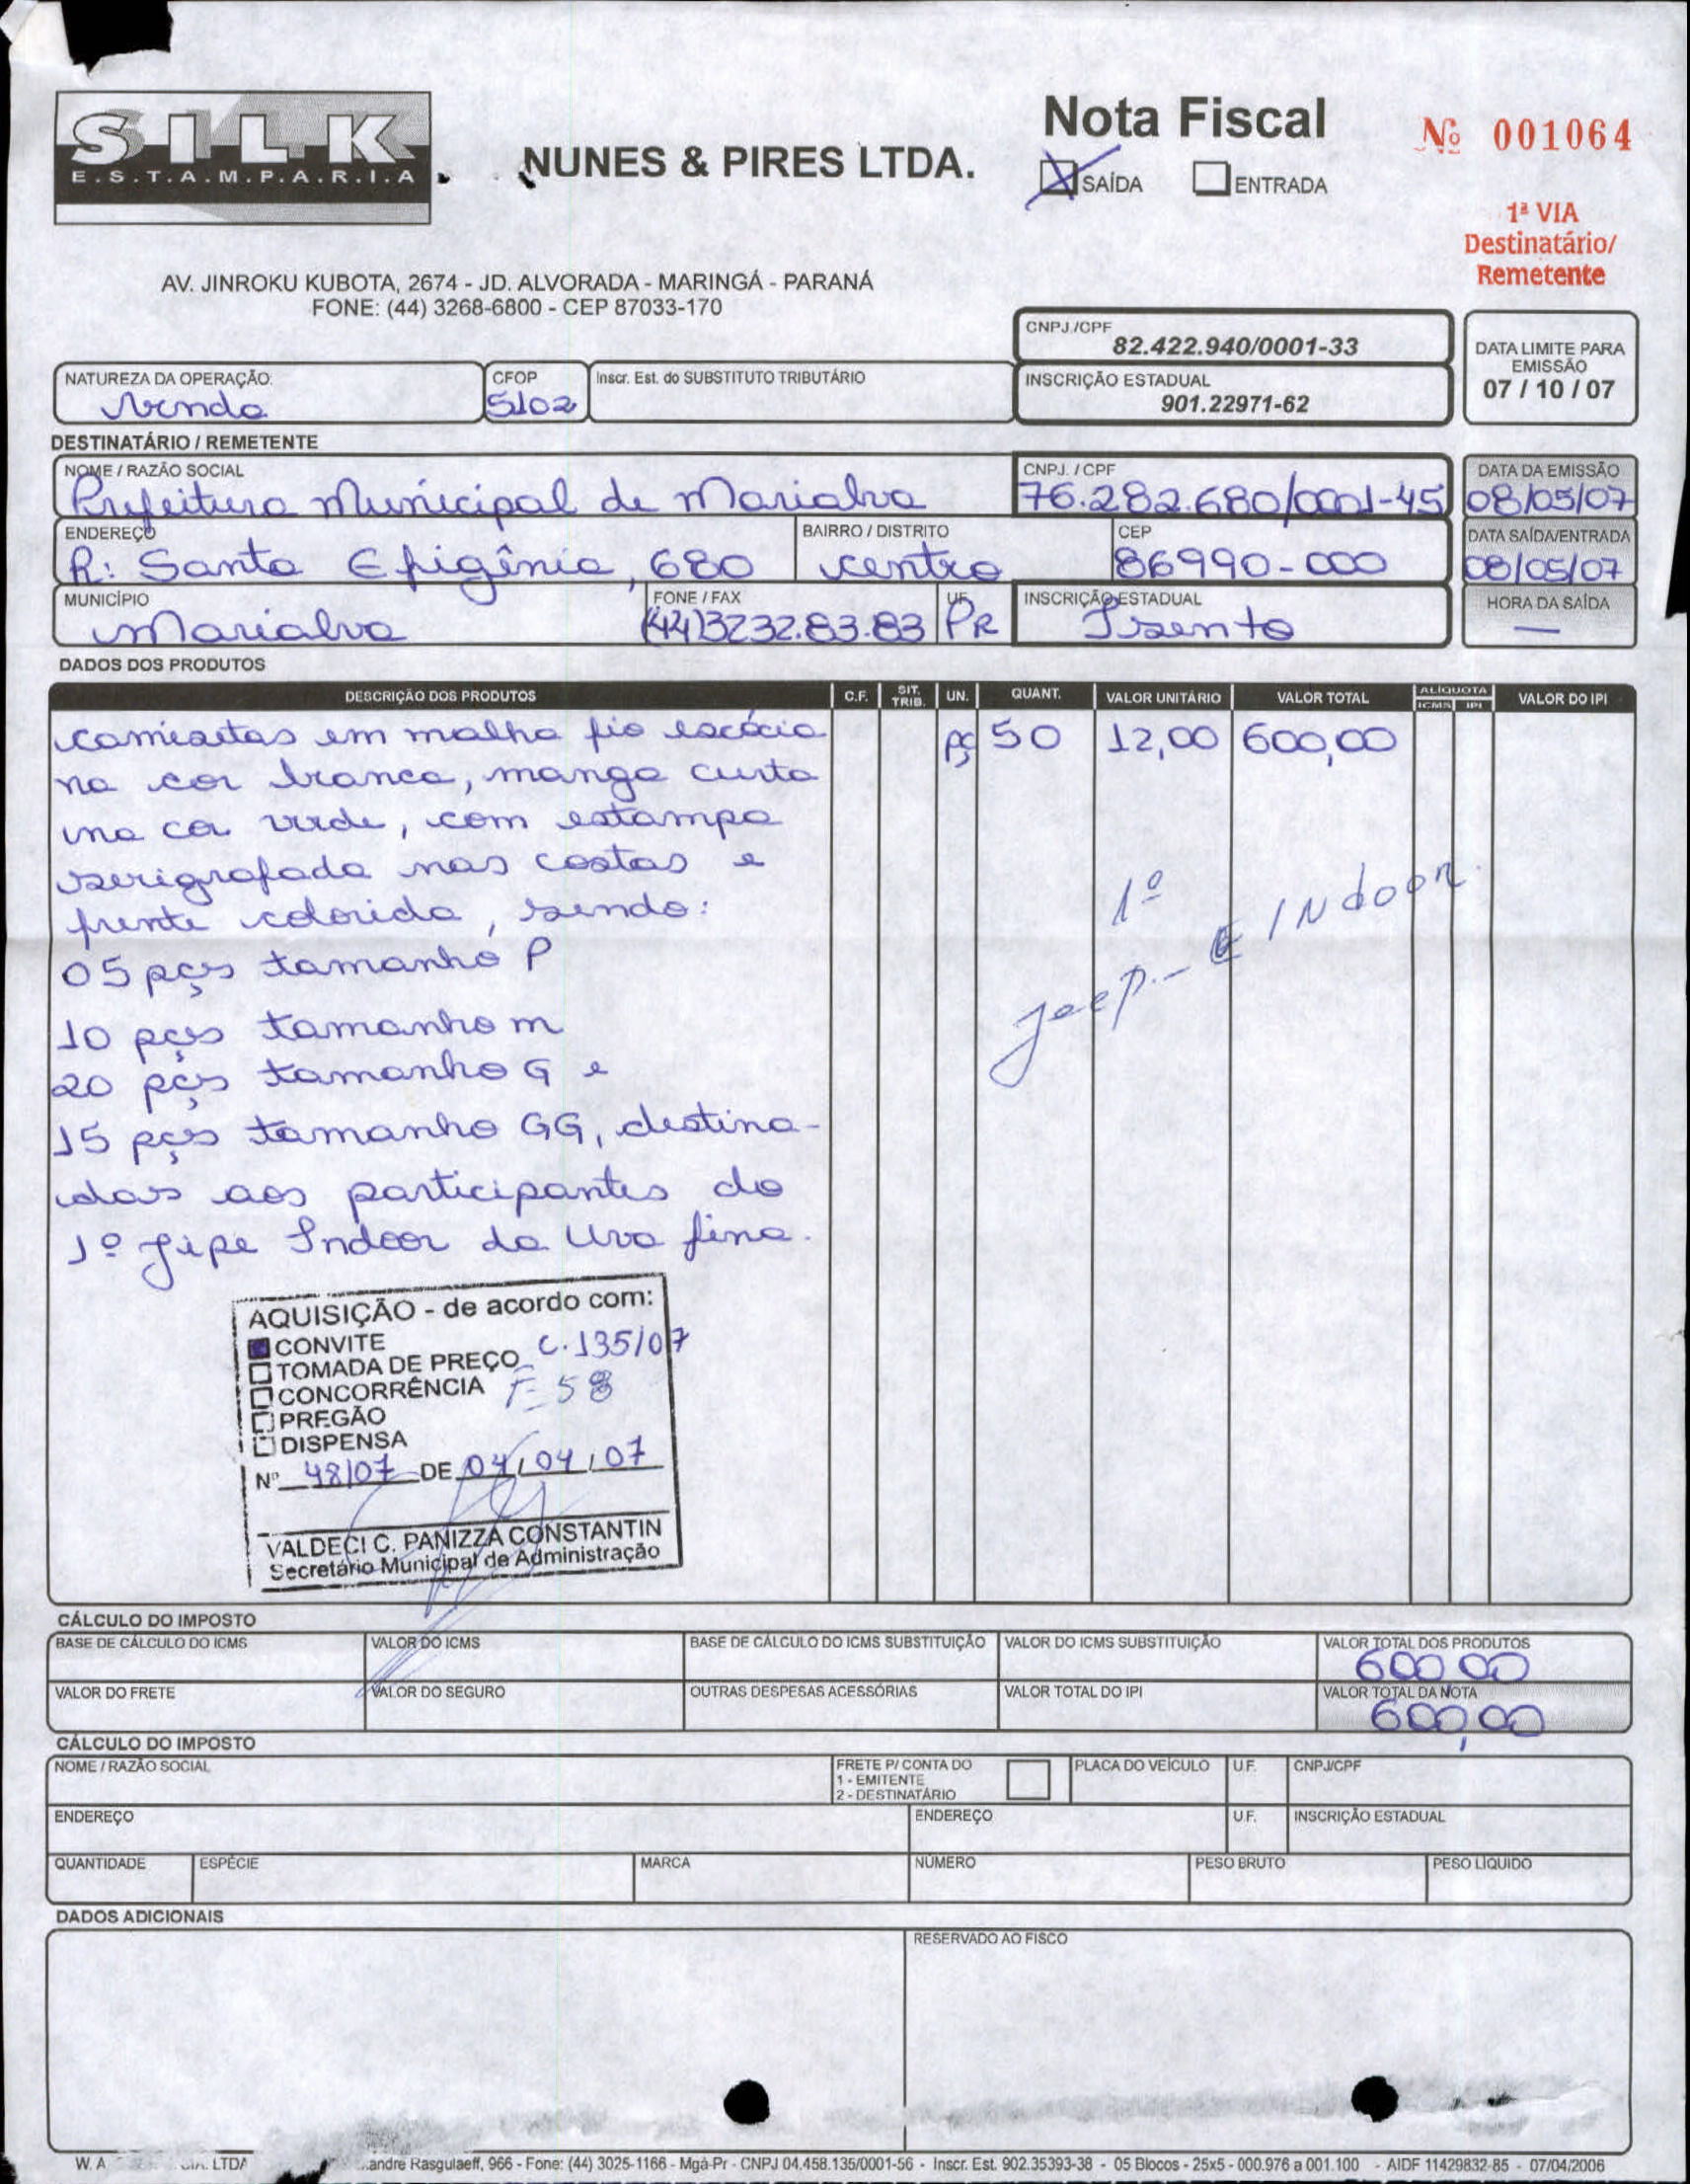 SILK
E.S.T.A.M.P.A.R.I.A
NUNES & PIRES LTDA.
Nota Fiscal
SAÍDA ENTRADA
Nº 001064
1ª VIA
Destinatário/
Remetente
AV. JINROKU KUBOTA, 2674 - JD. ALVORADA - MARINGÁ - PARANÁ
FONE: (44) 3268-6800 - CEP 87033-170
CNPJ./CPF
82.422.940/0001-33
INSCRIÇÃO ESTADUAL
901.22971-62
DATA LIMITE PARA
EMISSÃO
07 / 10 / 07
NATUREZA DA OPERAÇÃO
Venda
CFOP
5102
Inscr. Est. do SUBSTITUTO TRIBUTÁRIO
DESTINATÁRIO / REMETENTE
NOME / RAZÃO SOCIAL
Prefeitura Municipal de Marialva
CNPJ. / CPF
76.282.680/0001-45
DATA DA EMISSÃO
08/05/07
ENDEREÇO
R: Santa Efigênia, 680
BAIRRO / DISTRITO
centro
CEP
86990-000
DATA SAÍDA/ENTRADA
08/05/07
MUNICÍPIO
Marialva
FONE / FAX
(44)3232.83.83
UF
PR
INSCRIÇÃO ESTADUAL
Isento
HORA DA SAÍDA
—
DADOS DOS PRODUTOS
DESCRIÇÃO DOS PRODUTOS C.F. SIT. TRIB. UN. QUANT. VALOR UNITÁRIO VALOR TOTAL ALÍQUOTA ICMS IPI VALOR DO IPI
camisetas em malha fio escócia pç 50 12,00 600,00
na cor branca, manga curta
na cor verde, com estampa
serigrafada nas costas e
frente colorida, sendo:
05 pçs tamanho P
10 pçs tamanho m
20 pçs tamanho G e
15 pçs tamanho GG, destina-
das aos participantes do
1º Jipe Indoor da Uva fina.
1º
Jeep - INdoor.
AQUISIÇÃO - de acordo com:
CONVITE
C.135/07
TOMADA DE PREÇO
CONCORRÊNCIA
F-58
PREGÃO
DISPENSA
Nº 48/07 DE 04/04/07
VALDECI C. PANIZZA CONSTANTIN
Secretário Municipal de Administração
CÁLCULO DO IMPOSTO
BASE DE CÁLCULO DO ICMS VALOR DO ICMS BASE DE CÁLCULO DO ICMS SUBSTITUIÇÃO VALOR DO ICMS SUBSTITUIÇÃO VALOR TOTAL DOS PRODUTOS
600 00
VALOR DO FRETE VALOR DO SEGURO OUTRAS DESPESAS ACESSÓRIAS VALOR TOTAL DO IPI VALOR TOTAL DA NOTA
600,00
CÁLCULO DO IMPOSTO
NOME / RAZÃO SOCIAL
FRETE P/ CONTA DO
1 - EMITENTE
2 - DESTINATÁRIO
PLACA DO VEÍCULO U.F. CNPJ/CPF
ENDEREÇO ENDEREÇO U.F. INSCRIÇÃO ESTADUAL
QUANTIDADE ESPÉCIE MARCA NÚMERO PESO BRUTO PESO LÍQUIDO
DADOS ADICIONAIS
RESERVADO AO FISCO
W. A LTDA Rasgulaeff, 966 - Fone: (44) 3025-1166 - Mgá-Pr - CNPJ 04.458.135/0001-56 - Inscr. Est. 902.35393-38 - 05 Blocos - 25x5 - 000.976 a 001.100 - AIDF 11429832-85 - 07/04/2006